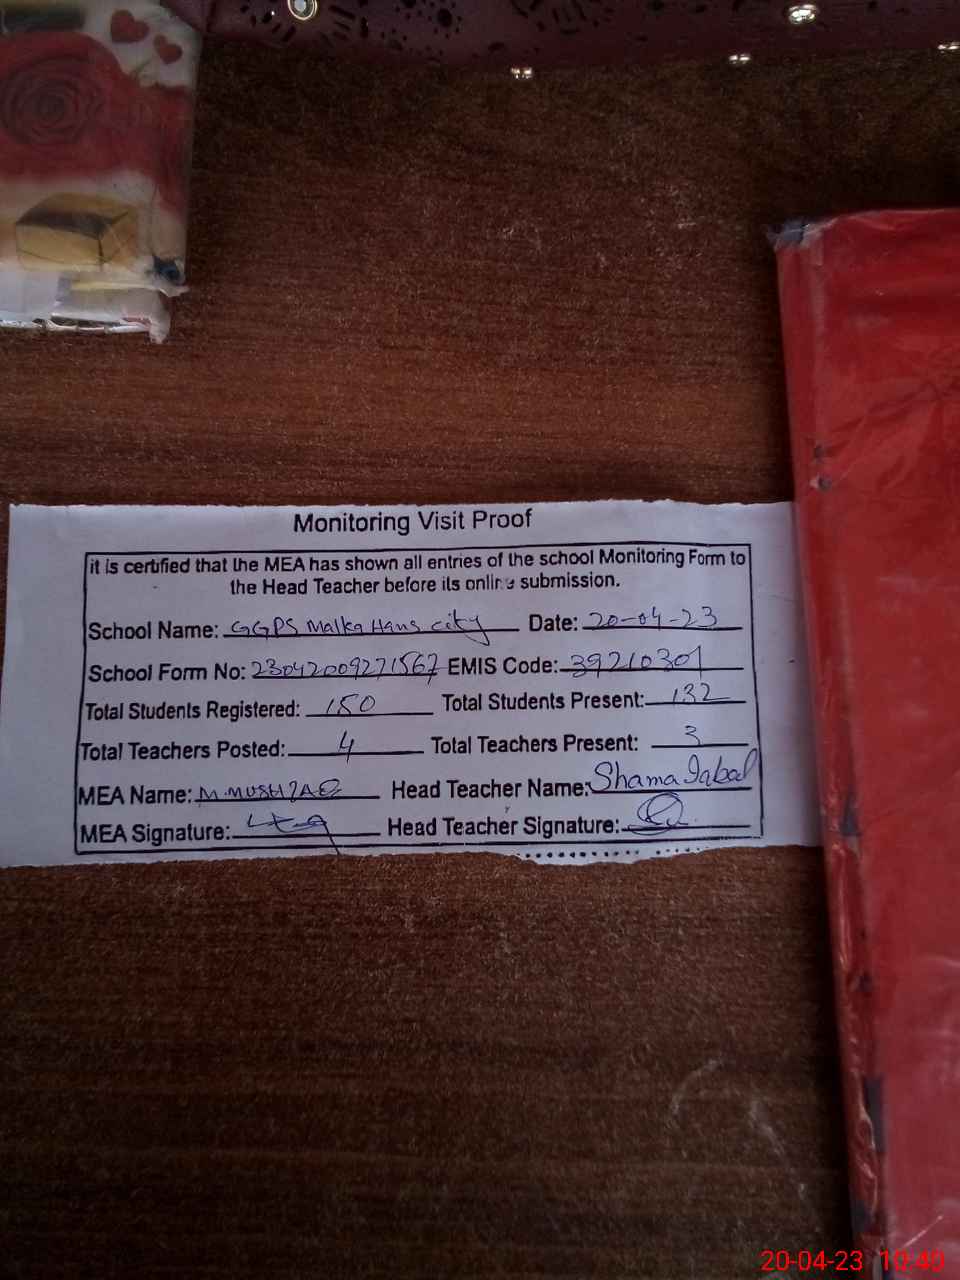 Monitoring Visit Proof
it is certified that the MEA has shown all entries of the school Monitoring Form to
the Head Teacher before its online submission.
School Name: GGPS Malka Hans city Date: 20-04-23
School Form No: 23042009271567 EMIS Code: 39210301
Total Students Registered: 150 Total Students Present: 132
Total Teachers Posted: 4 Total Teachers Present: 3
MEA Name: M.MUSHTAQ Head Teacher Name: Shama Iqbal
MEA Signature: Head Teacher Signature:
20-04-23 10:40